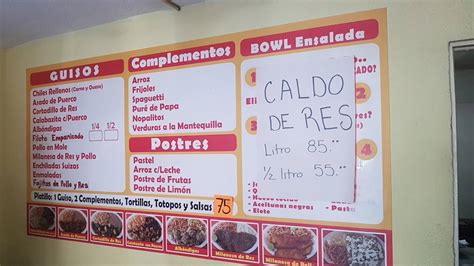 GUISOS
Chiles Rellenos (Carne y Queso)
Asado de Puerco
Cortadillo de Res
Calabacita c/Puerco
Albóndigas 1/4 1/2
Filete Empanizado
Pollo en Mole
Milanesa de Res y Pollo
Enchiladas Suizas
Enmoladas
Fajitas de Pollo y Res
Complementos
Arroz
Frijoles
Spaguetti
Puré de Papa
Nopalitos
Verduras a la Mantequilla
Postres
Pastel
Arroz c/Leche
Postre de Frutas
Postre de Limón
Platillo: 1 Guiso, 2 Complementos, Tortillas, Totopos y Salsas 75
BOWL Ensalada
CALDO
DE RES
Litro 85.00
1/2 litro 55.00
Aceitunas negras
Pasta
Elote
Cortadillo de Res
Albóndigas
Milanesa de Res